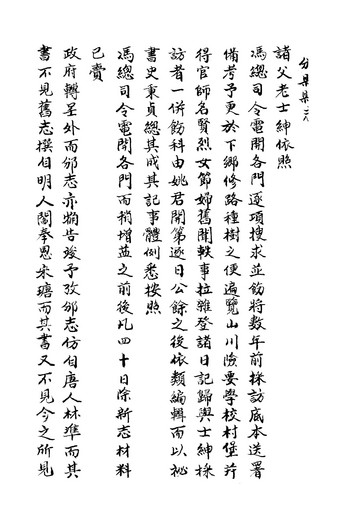 諸父老士紳依照
馮總司令電開各門逐項搜求並飭將數年前採訪底本送署
備考予更於下鄉修路種樹之便遍覽山川險要學校村堡并
得官師名賢烈女節婦舊聞軼事拉雜登諸日記歸與士紳採
訪者一併飭科由姚君開第逐日公餘之後依類編輯而以祕
書史秉貞總其成其記事體例悉按照
馮總司令電開各門而稍增益之前後凡四十日除新志材料
已賚
政府轉呈外而邠志亦犓告竣予攷邠志仿自唐人林準而其
書不見舊志撰自明人閻奉恩宋瑭而其書又不見今之所見